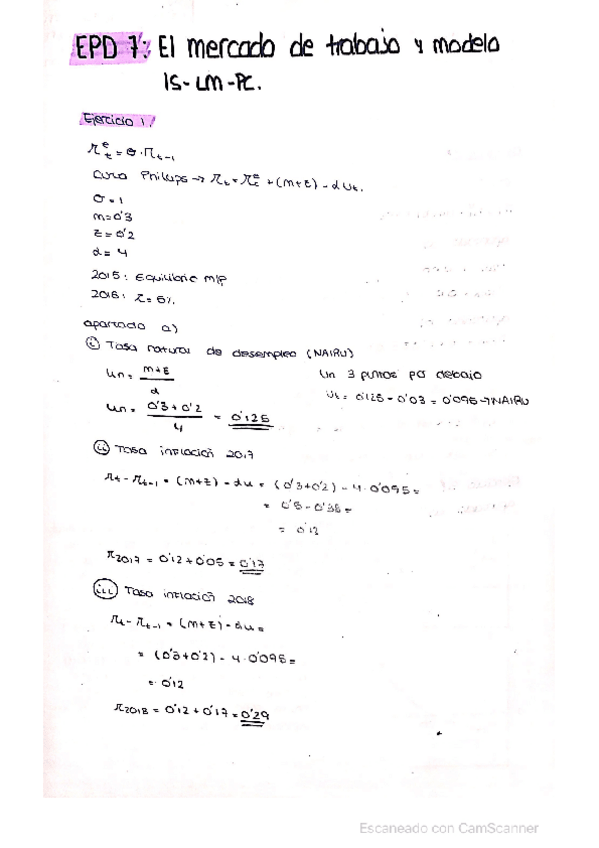 EPD 7: El mercado de trabajo y modelo
IS-LM-PC.
Ejercicio 1.
π^e_t = θ·π_t-1
Curva Phillips → π_t = π^e_t + (m+z) - αu_t.
θ = 1
m = 0'3
z = 0'2
α = 4
2015: Equilibrio M/P
2016: π = 5%.
apartado a)
i) Tasa natural de desempleo (NAIRU)
u_n = m+z / α
Un 3 puntos por debajo
u_n = 0'3 + 0'2 / 4 = 0'125
u_t = 0'125 - 0'03 = 0'095 → NAIRU
ii) Tasa inflación 2017
π_t - π_t-1 = (m+z) - αu = (0'3+0'2) - 4·0'095 =
= 0'5 - 0'38 =
= 0'12
π2017 = 0'12 + 0'05 = 0'17
iii) Tasa inflación 2018
π_t - π_t-1 = (m+z) - αu =
= (0'3+0'2) - 4·0'095 =
= 0'12
π2018 = 0'12 + 0'17 = 0'29
Escaneado con CamScanner